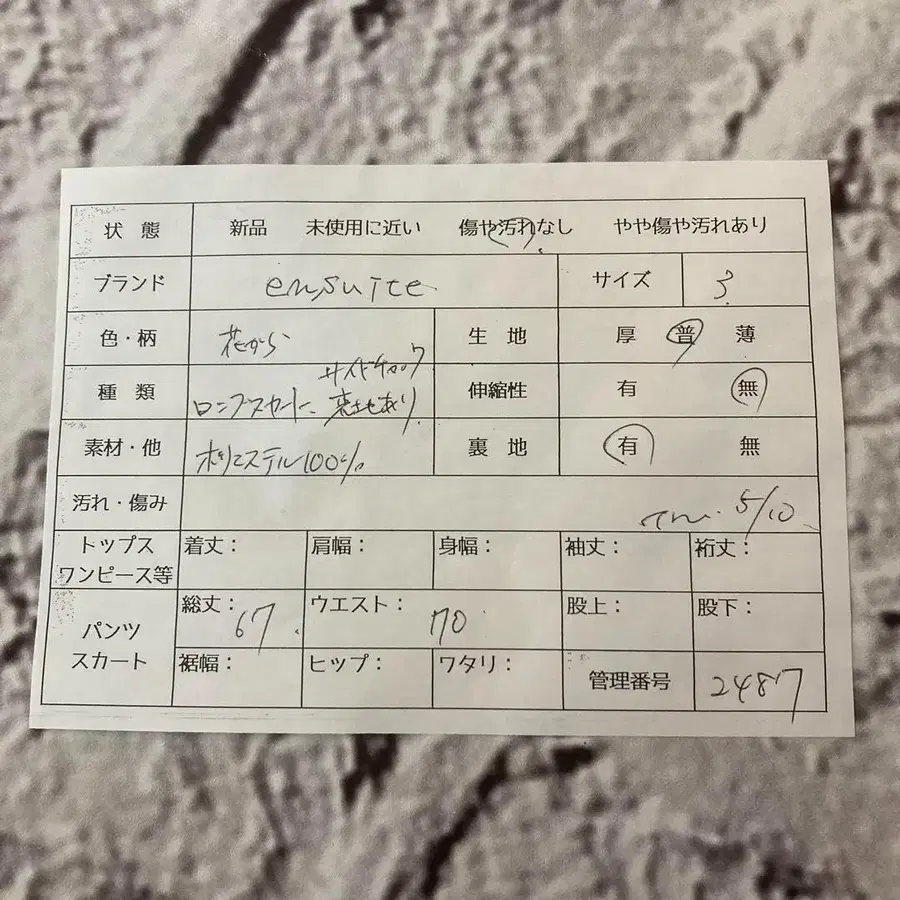 状態 新品 未使用に近い 傷や汚れなし やや傷や汚れあり
ブランド ensuite サイズ 3
色・柄 花がら 生地 厚 普 薄
サイドチャック
種類 ロングスカート、裏地あり 伸縮性 有 無
素材・他 ポリエステル100% 裏地 有 無
汚れ・傷み 5/10
トップス ワンピース等 着丈: 肩幅: 身幅: 袖丈: 裄丈:
パンツ スカート 総丈: 67 ウエスト: 70 股上: 股下:
裾幅: ヒップ: ワタリ: 管理番号 2487